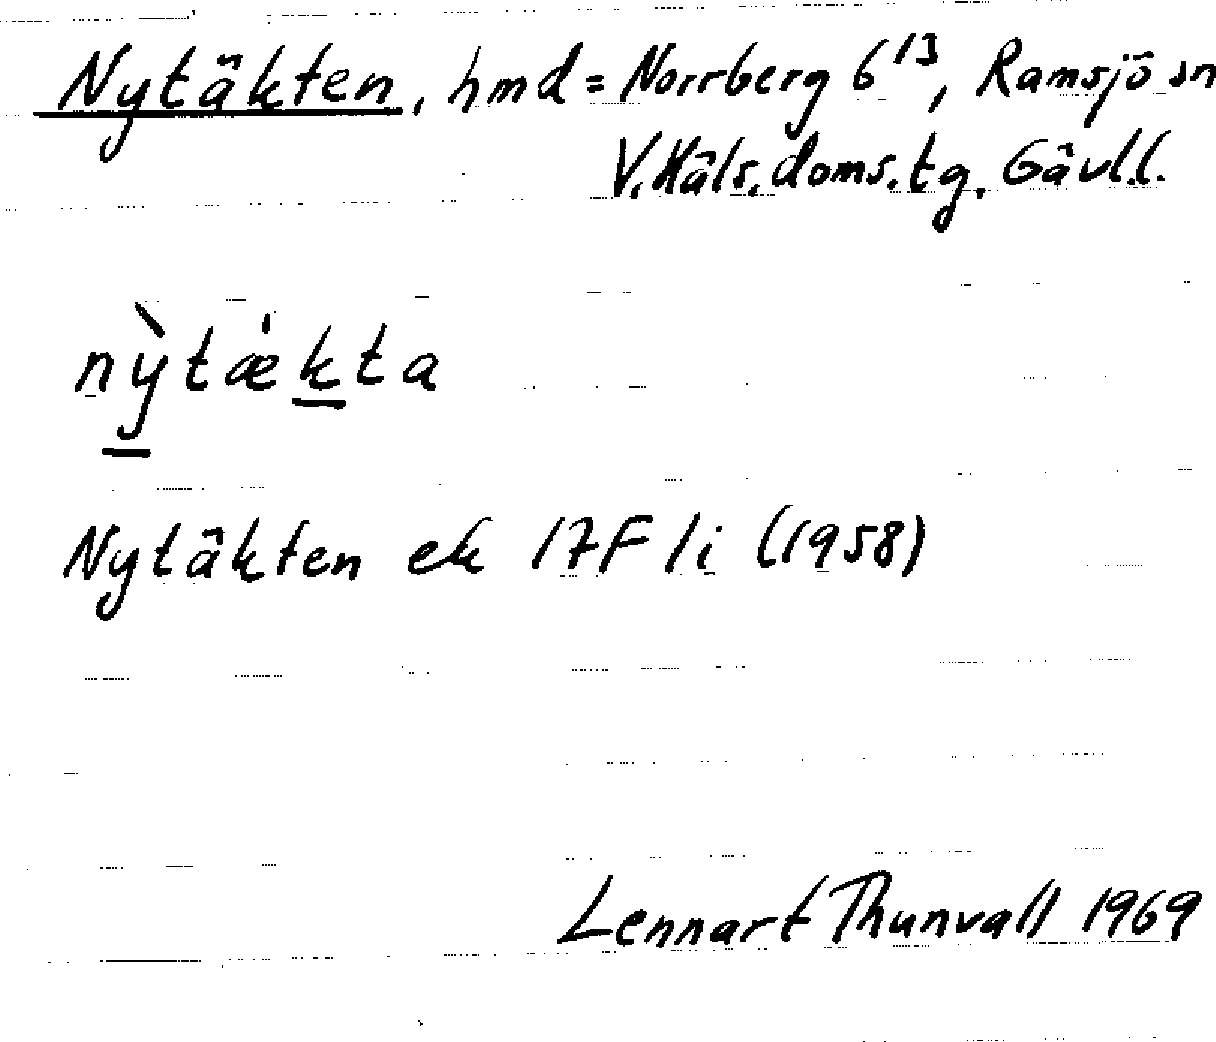 Nytäkten, hmd = Norrberg 6¹³, Ramsjö sn
V. Häls. doms. tg. Gävl.l.
nỳtǽkta
Nytäkten ek 17F 1i (1958)
Lennart Thunvall 1969